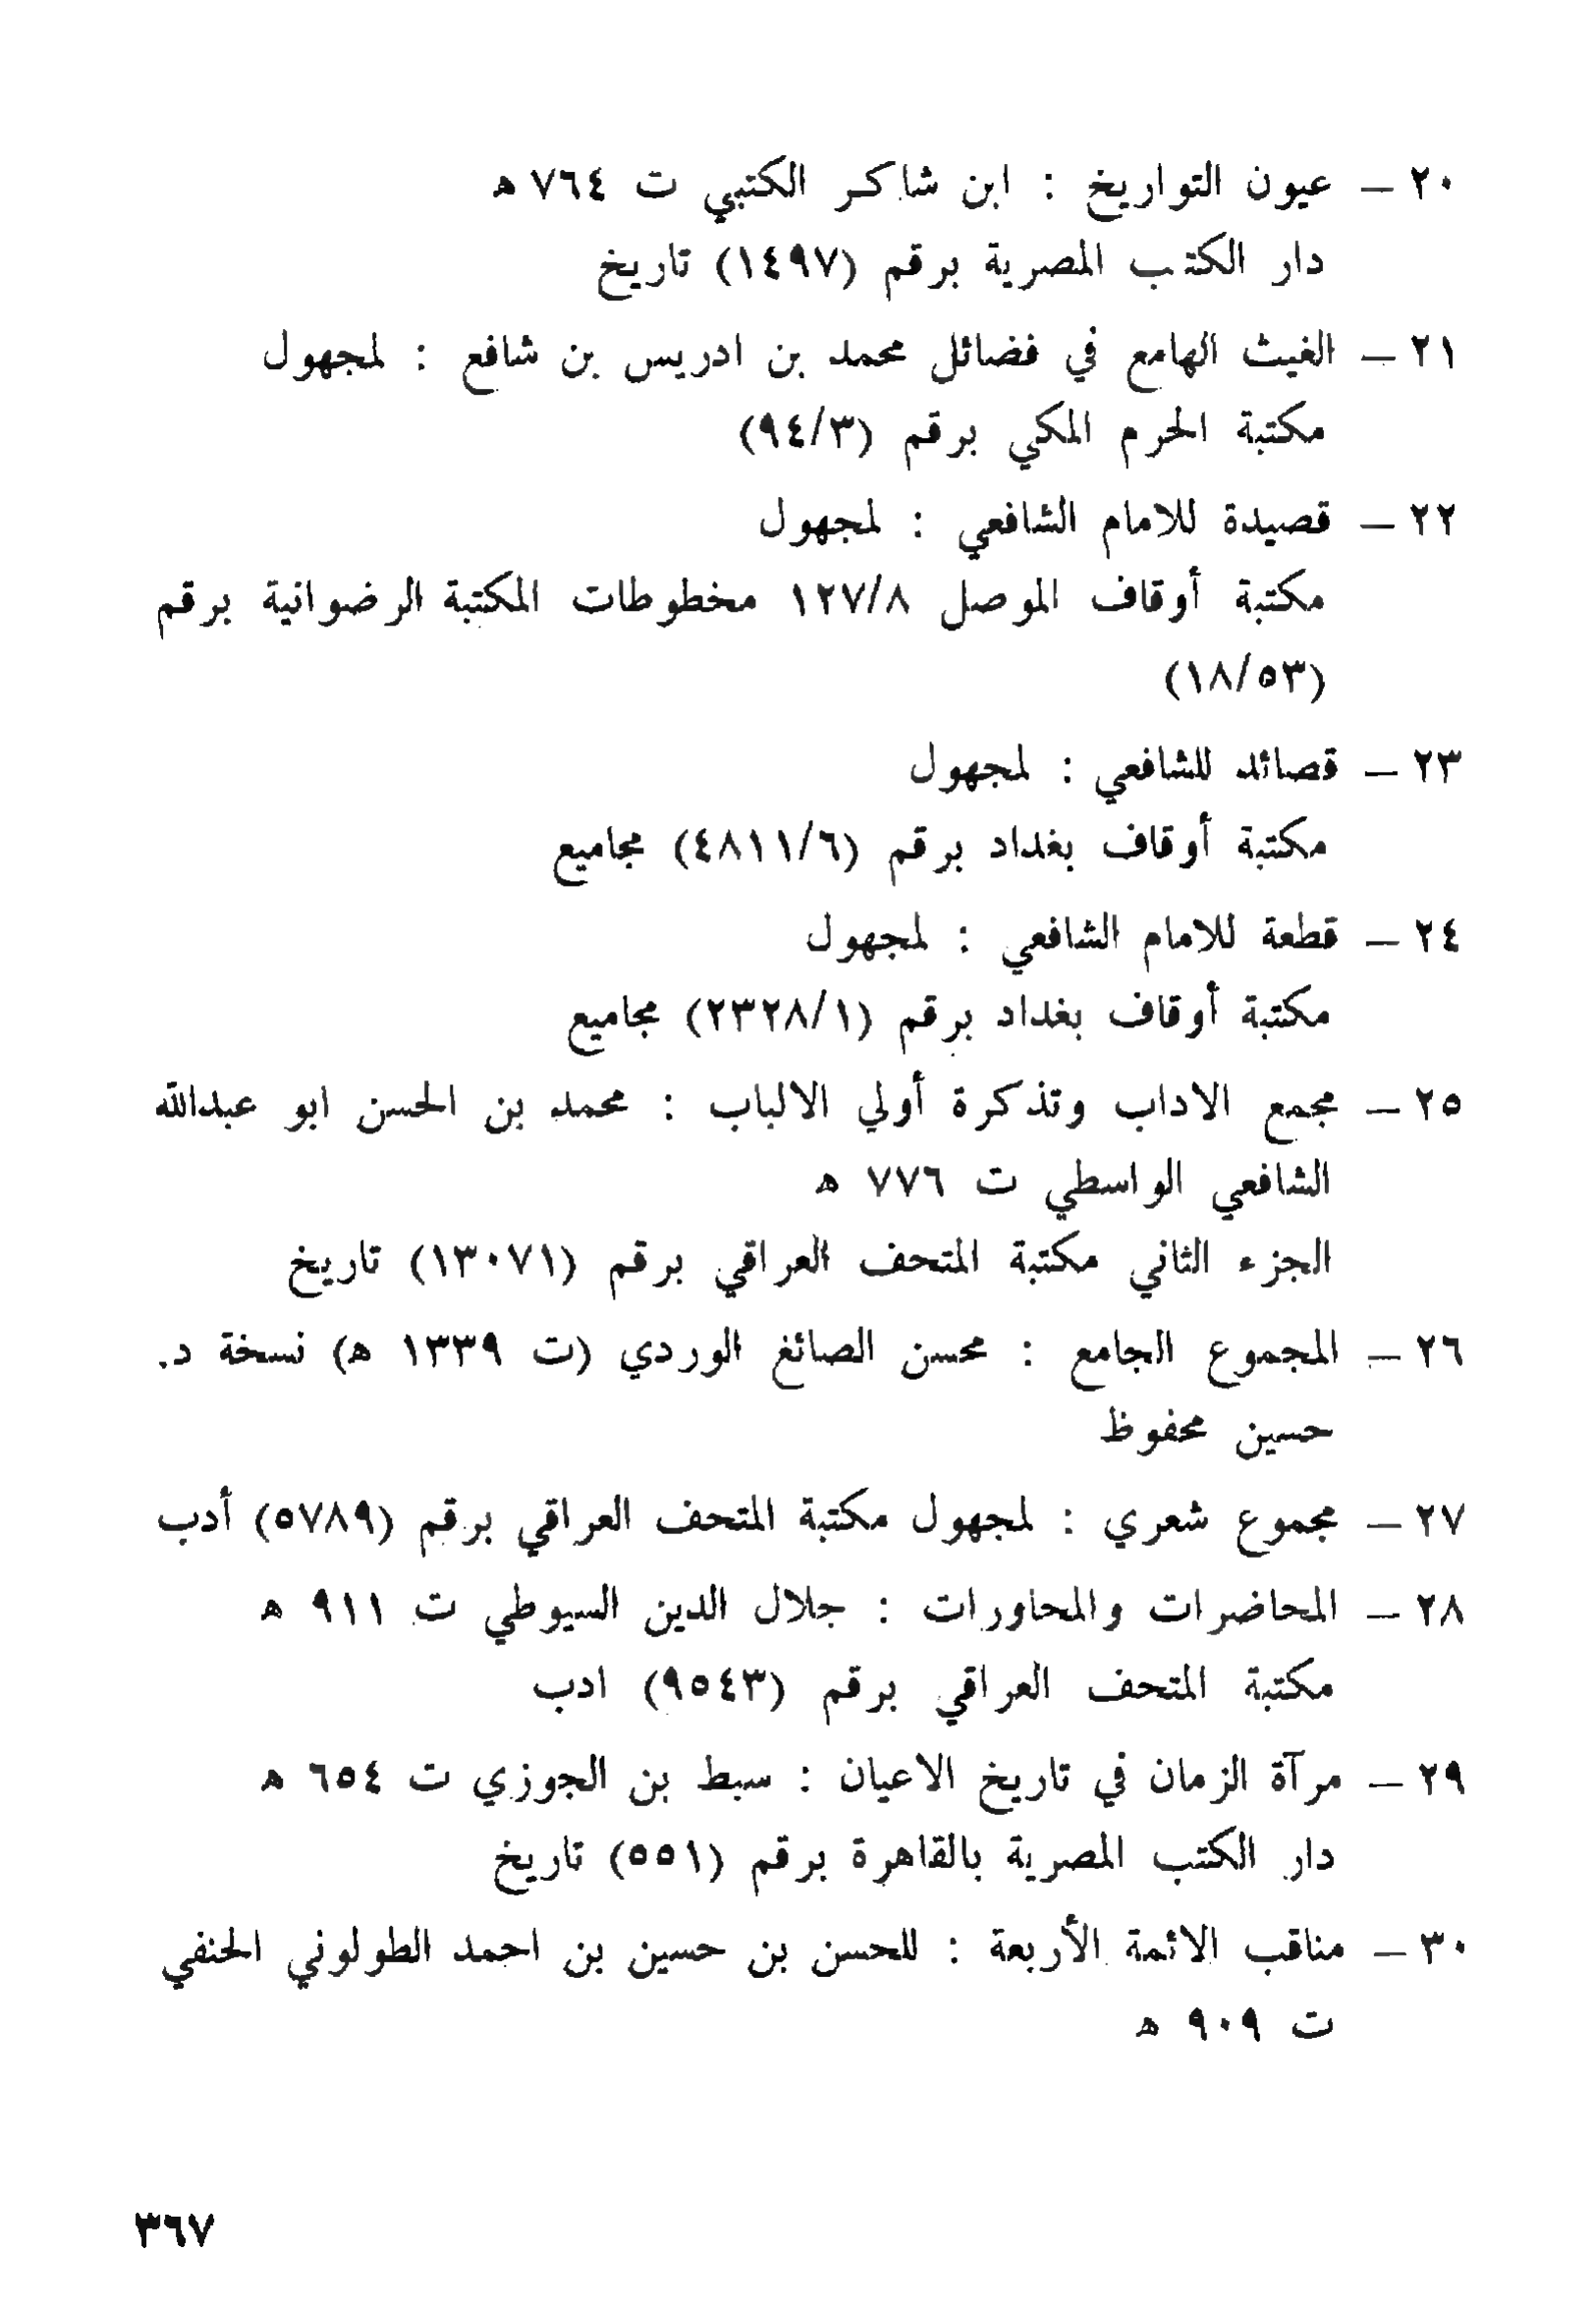 ٢٠ – عيون التواريخ : ابن شاكر الكتبي ت ٧٦٤ هـ
دار الكتب المصرية برقم (١٤٩٧) تاريخ
٢١ – الغيث الهامع في فضائل محمد بن ادريس بن شافع : لمجهول
مكتبة الحرم المكي برقم (٩٤/٣)
٢٢ – قصيدة للامام الشافعي : لمجهول
مكتبة أوقاف الموصل ١٢٧/٨ مخطوطات المكتبة الرضوانية برقم
(١٨/٥٣)
٢٣ – قصائد للشافعي : لمجهول
مكتبة أوقاف بغداد برقم (٤٨١١/٦) مجاميع
٢٤ – قطعة للامام الشافعي : لمجهول
مكتبة أوقاف بغداد برقم (٢٣٢٨/١) مجاميع
٢٥ – مجمع الاداب وتذكرة أولي الالباب : محمد بن الحسن ابو عبدالله
الشافعي الواسطي ت ٧٧٦ هـ
الجزء الثاني مكتبة المتحف العراقي برقم (١٣٠٧١) تاريخ
٢٦ – المجموع الجامع : محسن الصائغ الوردي (ت ١٣٣٩ هـ) نسخة د.
حسين محفوظ
٢٧ – مجموع شعري : لمجهول مكتبة المتحف العراقي برقم (٥٧٨٩) أدب
٢٨ – المحاضرات والمحاورات : جلال الدين السيوطي ت ٩١١ هـ
مكتبة المتحف العراقي برقم (٩٥٤٣) ادب
٢٩ – مرآة الزمان في تاريخ الاعيان : سبط بن الجوزي ت ٦٥٤ هـ
دار الكتب المصرية بالقاهرة برقم (٥٥١) تاريخ
٣٠ – مناقب الائمة الأربعة : للحسن بن حسين بن احمد الطولوني الحنفي
ت ٩٠٩ هـ
٣٦٧